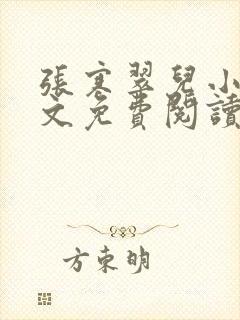 張寒翠兒小
文免費閱讀
方東明